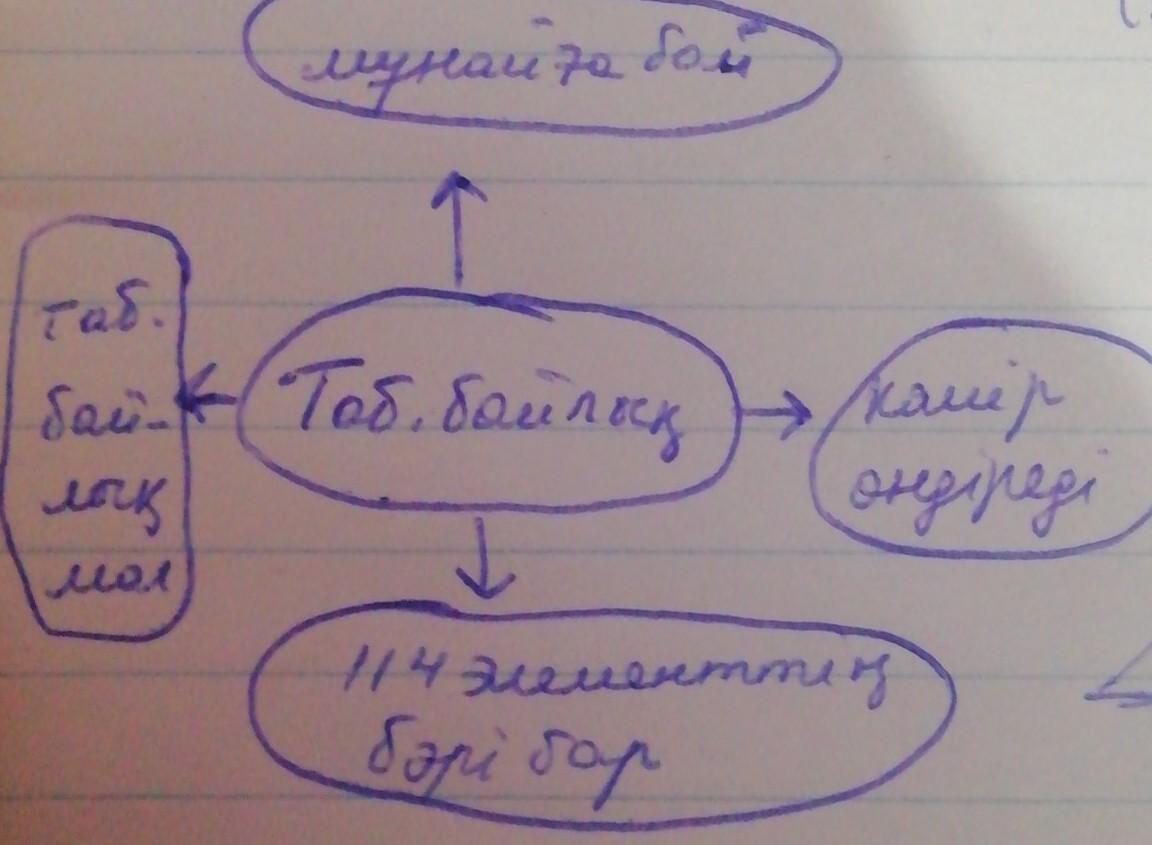 мұнайға бай
таб.
бай-
лық
мол
Таб. байлық
көмір
өндіреді
114 элементтің
бәрі бар